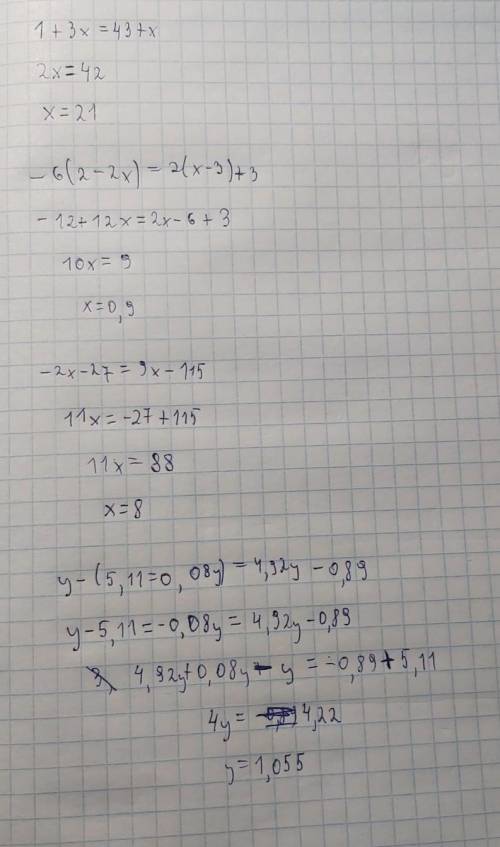 1 + 3x = 43 + x
2x = 42
x = 21
- 6(2 - 2x) = 2(x - 3) + 3
- 12 + 12x = 2x - 6 + 3
10x = 9
x = 0,9
- 2x - 27 = 9x - 115
11x = -27 + 115
11x = 88
x = 8
y - (5,11 = 0,08y) = 4,92y - 0,89
y - 5,11 = -0,08y = 4,92y - 0,89
4,92y + 0,08y - y = -0,89 + 5,11
4y = 4,22
y = 1,055